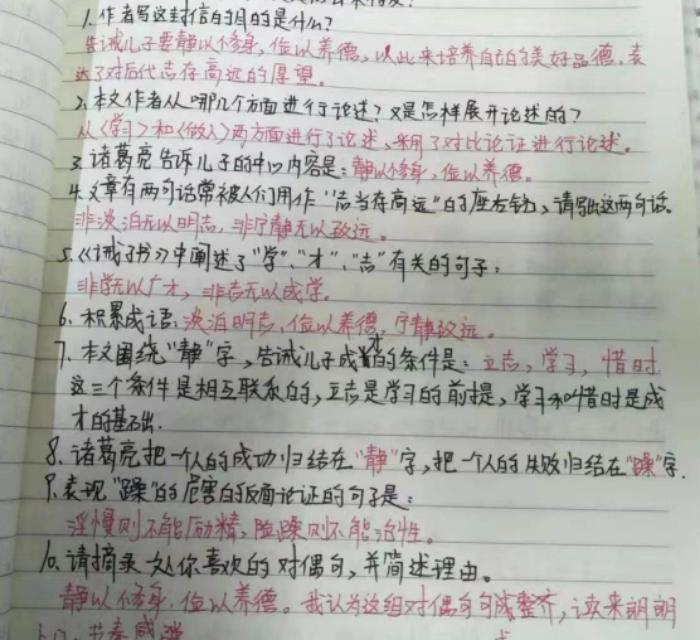 1.作者写这封信的目的是什么?
告诫儿子要静以修身,俭以养德,以此来培养自己的美好品德,表
达了对后代志存高远的厚望。
2.本文作者从哪几个方面进行论述?又是怎样展开论述的?
从〈学习〉和〈做人〉两方面进行了论述,采用了对比论证进行论述。
3.诸葛亮告诉儿子的中心内容是:静以修身,俭以养德。
4.文章有两句话常被人们用作“志当存高远”的座右铭,请写出这两句话。
非淡泊无以明志,非宁静无以致远。
5.《诫子书》中阐述了“学”、“才”、“志”有关的句子:
非学无以广才,非志无以成学。
6.积累成语:淡泊明志,俭以养德,宁静致远。
7.本文围绕“静”字,告诫儿子成才的条件是:立志,学习,惜时
这三个条件是相互联系的,立志是学习的前提,学习和惜时是成
才的基础.
8.诸葛亮把一个人的成功归结在“静”字,把一个人的失败归结在“躁”字.
9.表现“躁”的危害的反面论证的句子是:
淫慢则不能励精,险躁则不能治性。
10.请摘录一处你喜欢的对偶句,并简述理由。
静以修身,俭以养德。我认为这组对偶句句式整齐,读来朗朗
节奏感强